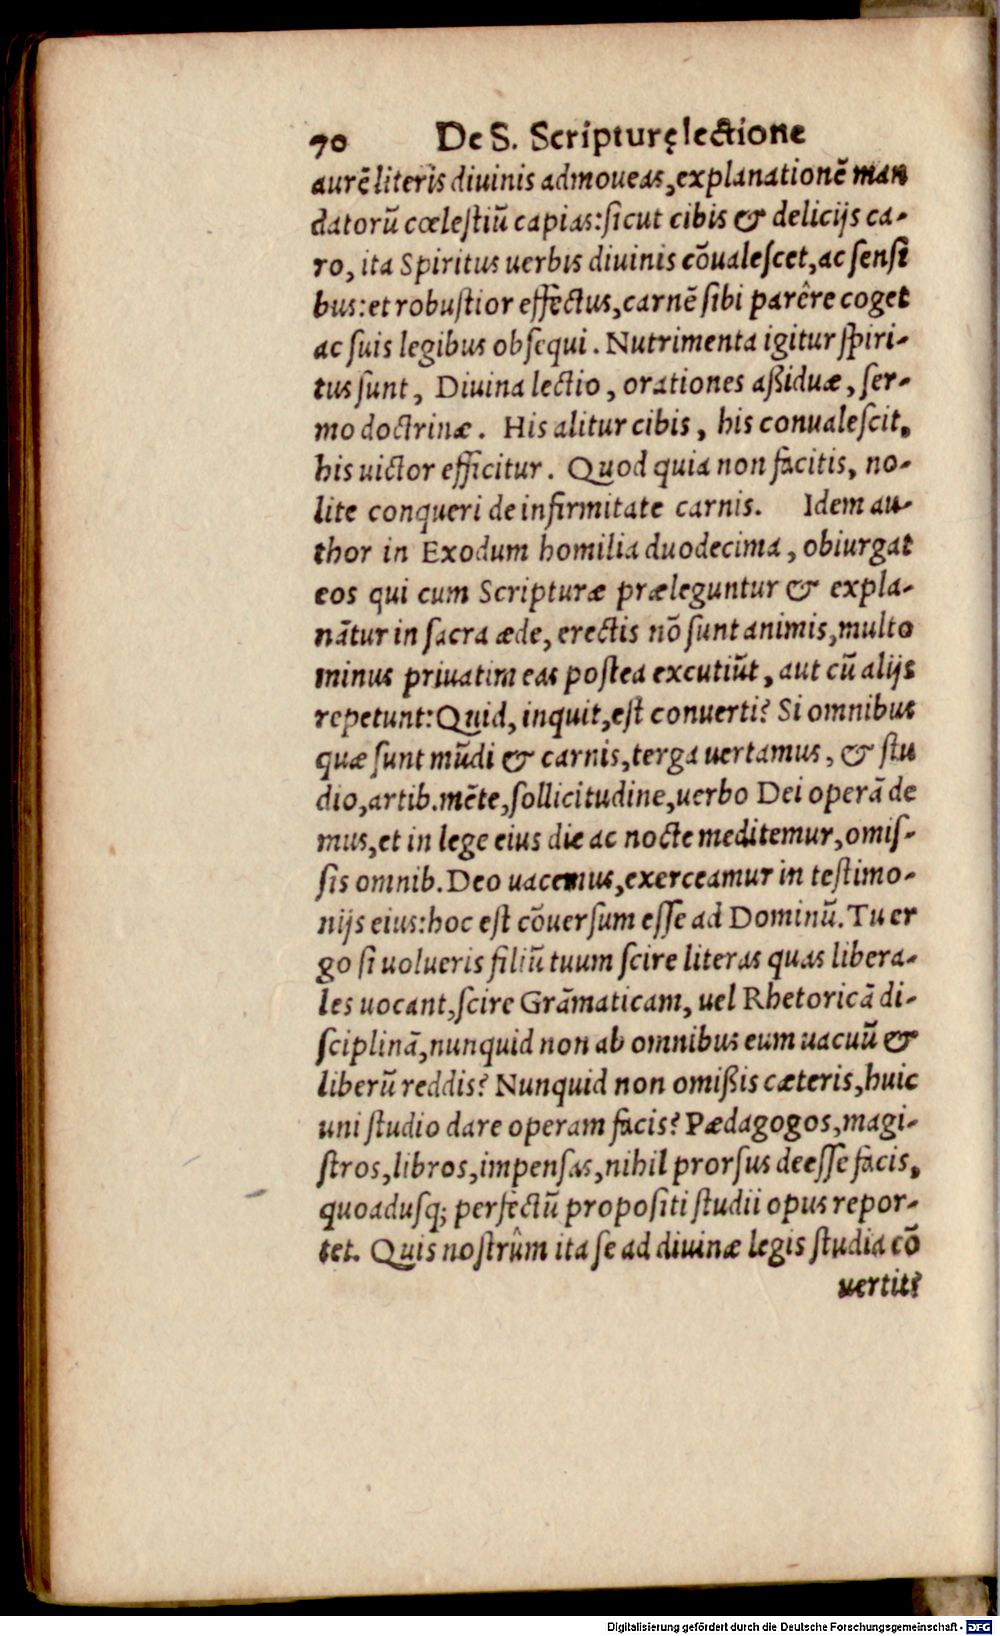 70 De S. Scripturę lectione
aurē literis diuinis admoueas, explanationē man
datorū cœlestiū capias: sicut cibis & delicijs ca-
ro, ita Spiritus uerbis diuinis cōualescet, ac sensi
bus: et robustior effectus, carnē sibi parêre coget
ac suis legibus obsequi. Nutrimenta igitur spiri-
tus sunt, Diuina lectio, orationes aßiduæ, ser-
mo doctrinæ. His alitur cibis, his conualescit,
his uictor efficitur. Quod quia non facitis, no-
lite conqueri de infirmitate carnis. Idem au-
thor in Exodum homilia duodecima, obiurgat
eos qui cum Scripturæ præleguntur & expla-
nātur in sacra æde, erectis nō sunt animis, multo
minus priuatim eas postea excutiūt, aut cū alijs
repetunt: Quid, inquit, est conuerti? Si omnibus
quæ sunt mūdi & carnis, terga uertamus, & stu
dio, artib. mēte, sollicitudine, uerbo Dei operā de
mus, et in lege eius die ac nocte meditemur, omis-
sis omnib. Deo uacemus, exerceamur in testimo-
nijs eius: hoc est cōuersum esse ad Dominū. Tu er
go si uolueris filiū tuum scire literas quas libera-
les uocant, scire Grāmaticam, uel Rhetoricā di-
sciplinā, nunquid non ab omnibus eum uacuū &
liberū reddis? Nunquid non omißis cæteris, huic
uni studio dare operam facis? Pædagogos, magi-
stros, libros, impensas, nihil prorsus deesse facis,
quoadusq; perfectū propositi studii opus repor-
tet. Quis nostrûm ita se ad diuinæ legis studia cō
uertit?
Digitalisierung gefördert durch die Deutsche Forschungsgemeinschaft - DFG